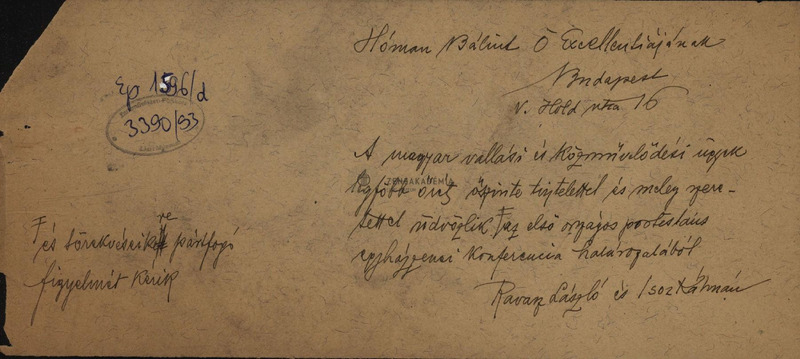 Hóman Bálint Ő Excellentiájának
Budapest
V. Hold utca 16
Ep 1596/d
3390/93
A magyar vallási és közművelődési ügyek
legfőbb őrét őszinte tisztelettel és meleg szere-
tettel üdvözlik F az első országos protestáns
egyházzenei konferencia határozatából
Ravasz László és Isoz Kálmán
F és törekvéseikre pártfogó
figyelmét kérik
ZENEAKADÉMIA